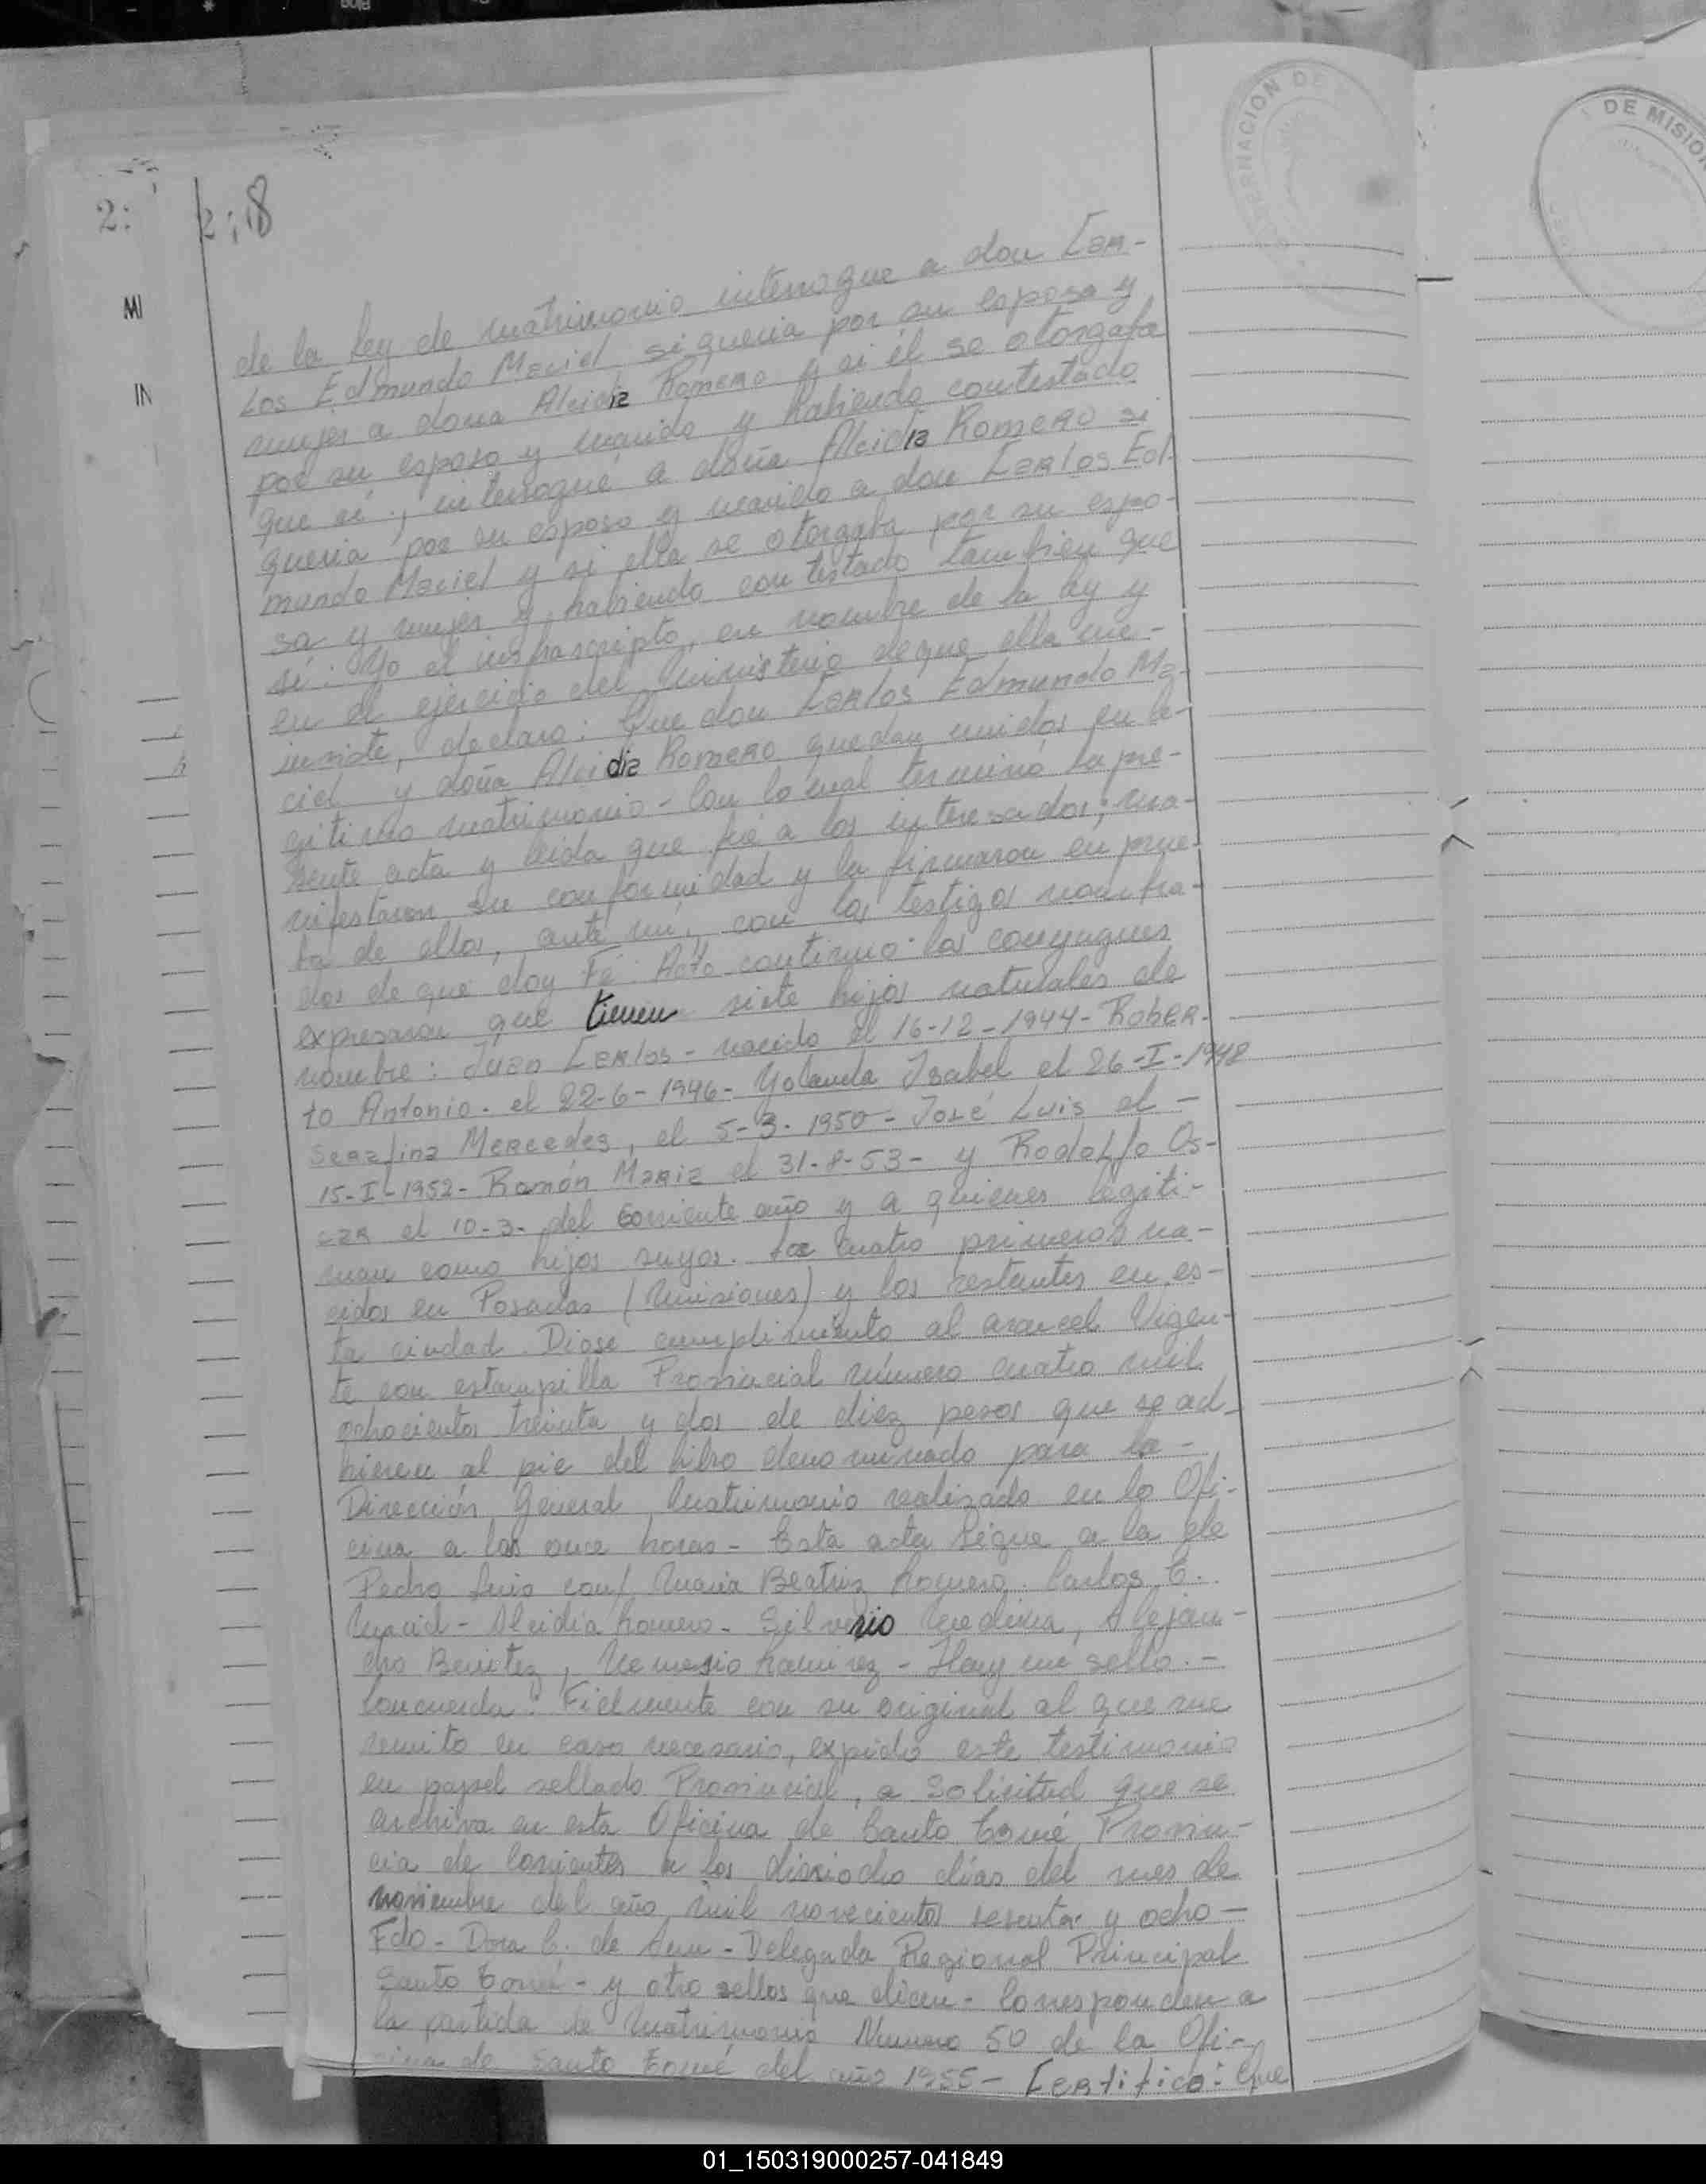 2: 2;18
MI
IN
ERNACION DE
DE MISION
de la ley de matrimonio interrogue a don Car-
los Edmundo Maciel si queria por su esposa y
mujer a doña Alcidia Romero y si él se otorgaba
por su esposo y marido y habiendo contestado
que si, interrogué a doña Alcidia Romero si
queria por su esposo y marido a don Carlos Ed-
mundo Maciel y si ella se otorgaba por su espo-
sa y mujer y habiendo contestado tambien que
si: Yo el infrascripto, en nombre de la ley y
en el ejercicio del Ministerio de que ella me
inviste, declaro: Que don Carlos Edmundo Ma-
ciel y doña Alcidia Romero quedan unidos en le-
gitimo matrimonio - Con lo cual terminó la pre-
sente acta y leida que fué a los interesados, ma-
nifestaron su conformidad y la firmaron en prue-
ba de ellos, ante mi, con los testigos nombra-
dos de que doy Fé. Acto continuo los conyugues
expresaron que tienen siete hijos naturales de
nombre: Juan Carlos - nacido el 16-12-1944 - Rober-
to Antonio. el 22-6-1946- Yolanda Isabel el 26-I-1948
Serafina Mercedes, el 5-3-1950 - José Luis el -
15-I-1952- Ramón Maria el 31-8-53- y Rodolfo Os-
car el 10-3- del corriente año y a quienes legiti-
man como hijos suyos. los cuatro primeros na-
cidos en Posadas (Misiones) y los restantes en es-
ta ciudad. Diose cumplimiento al arancel Vigen-
te con estampilla Provincial número cuatro mil
ochocientos treinta y dos de diez pesos que se ad-
hieren al pie del libro denominado para la -
Dirección General, Matrimonio realizado en la Ofi-
cina a las once horas - Esta acta sigue a la de
Pedro Luis con/ Maria Beatriz Romero. Carlos E.
Maciel - Alcidia Romero - Silverio Medina, Alejan-
dro Benitez, Nemesio Ramirez - Hay un sello. -
Concuerda: Fielmente con su original al que me
remito en caso necesario, expido este testimonio
en papel sellado Provincial, a Solicitud que se
archiva en esta Oficina de Santo Tomé, Provin-
cia de Corrientes a los dieciocho dias del mes de
noviembre del año mil novecientos sesenta y ocho -
Fdo - Dora C. de - Delegada Regional Principal
Santo Tomé - y otro sellos que dicen - Corresponden a
la partida de Matrimonio Numero 50 de la Ofi-
cina de Santo Tomé del año 1955 - Certifico: Que
01_150319000257-041849